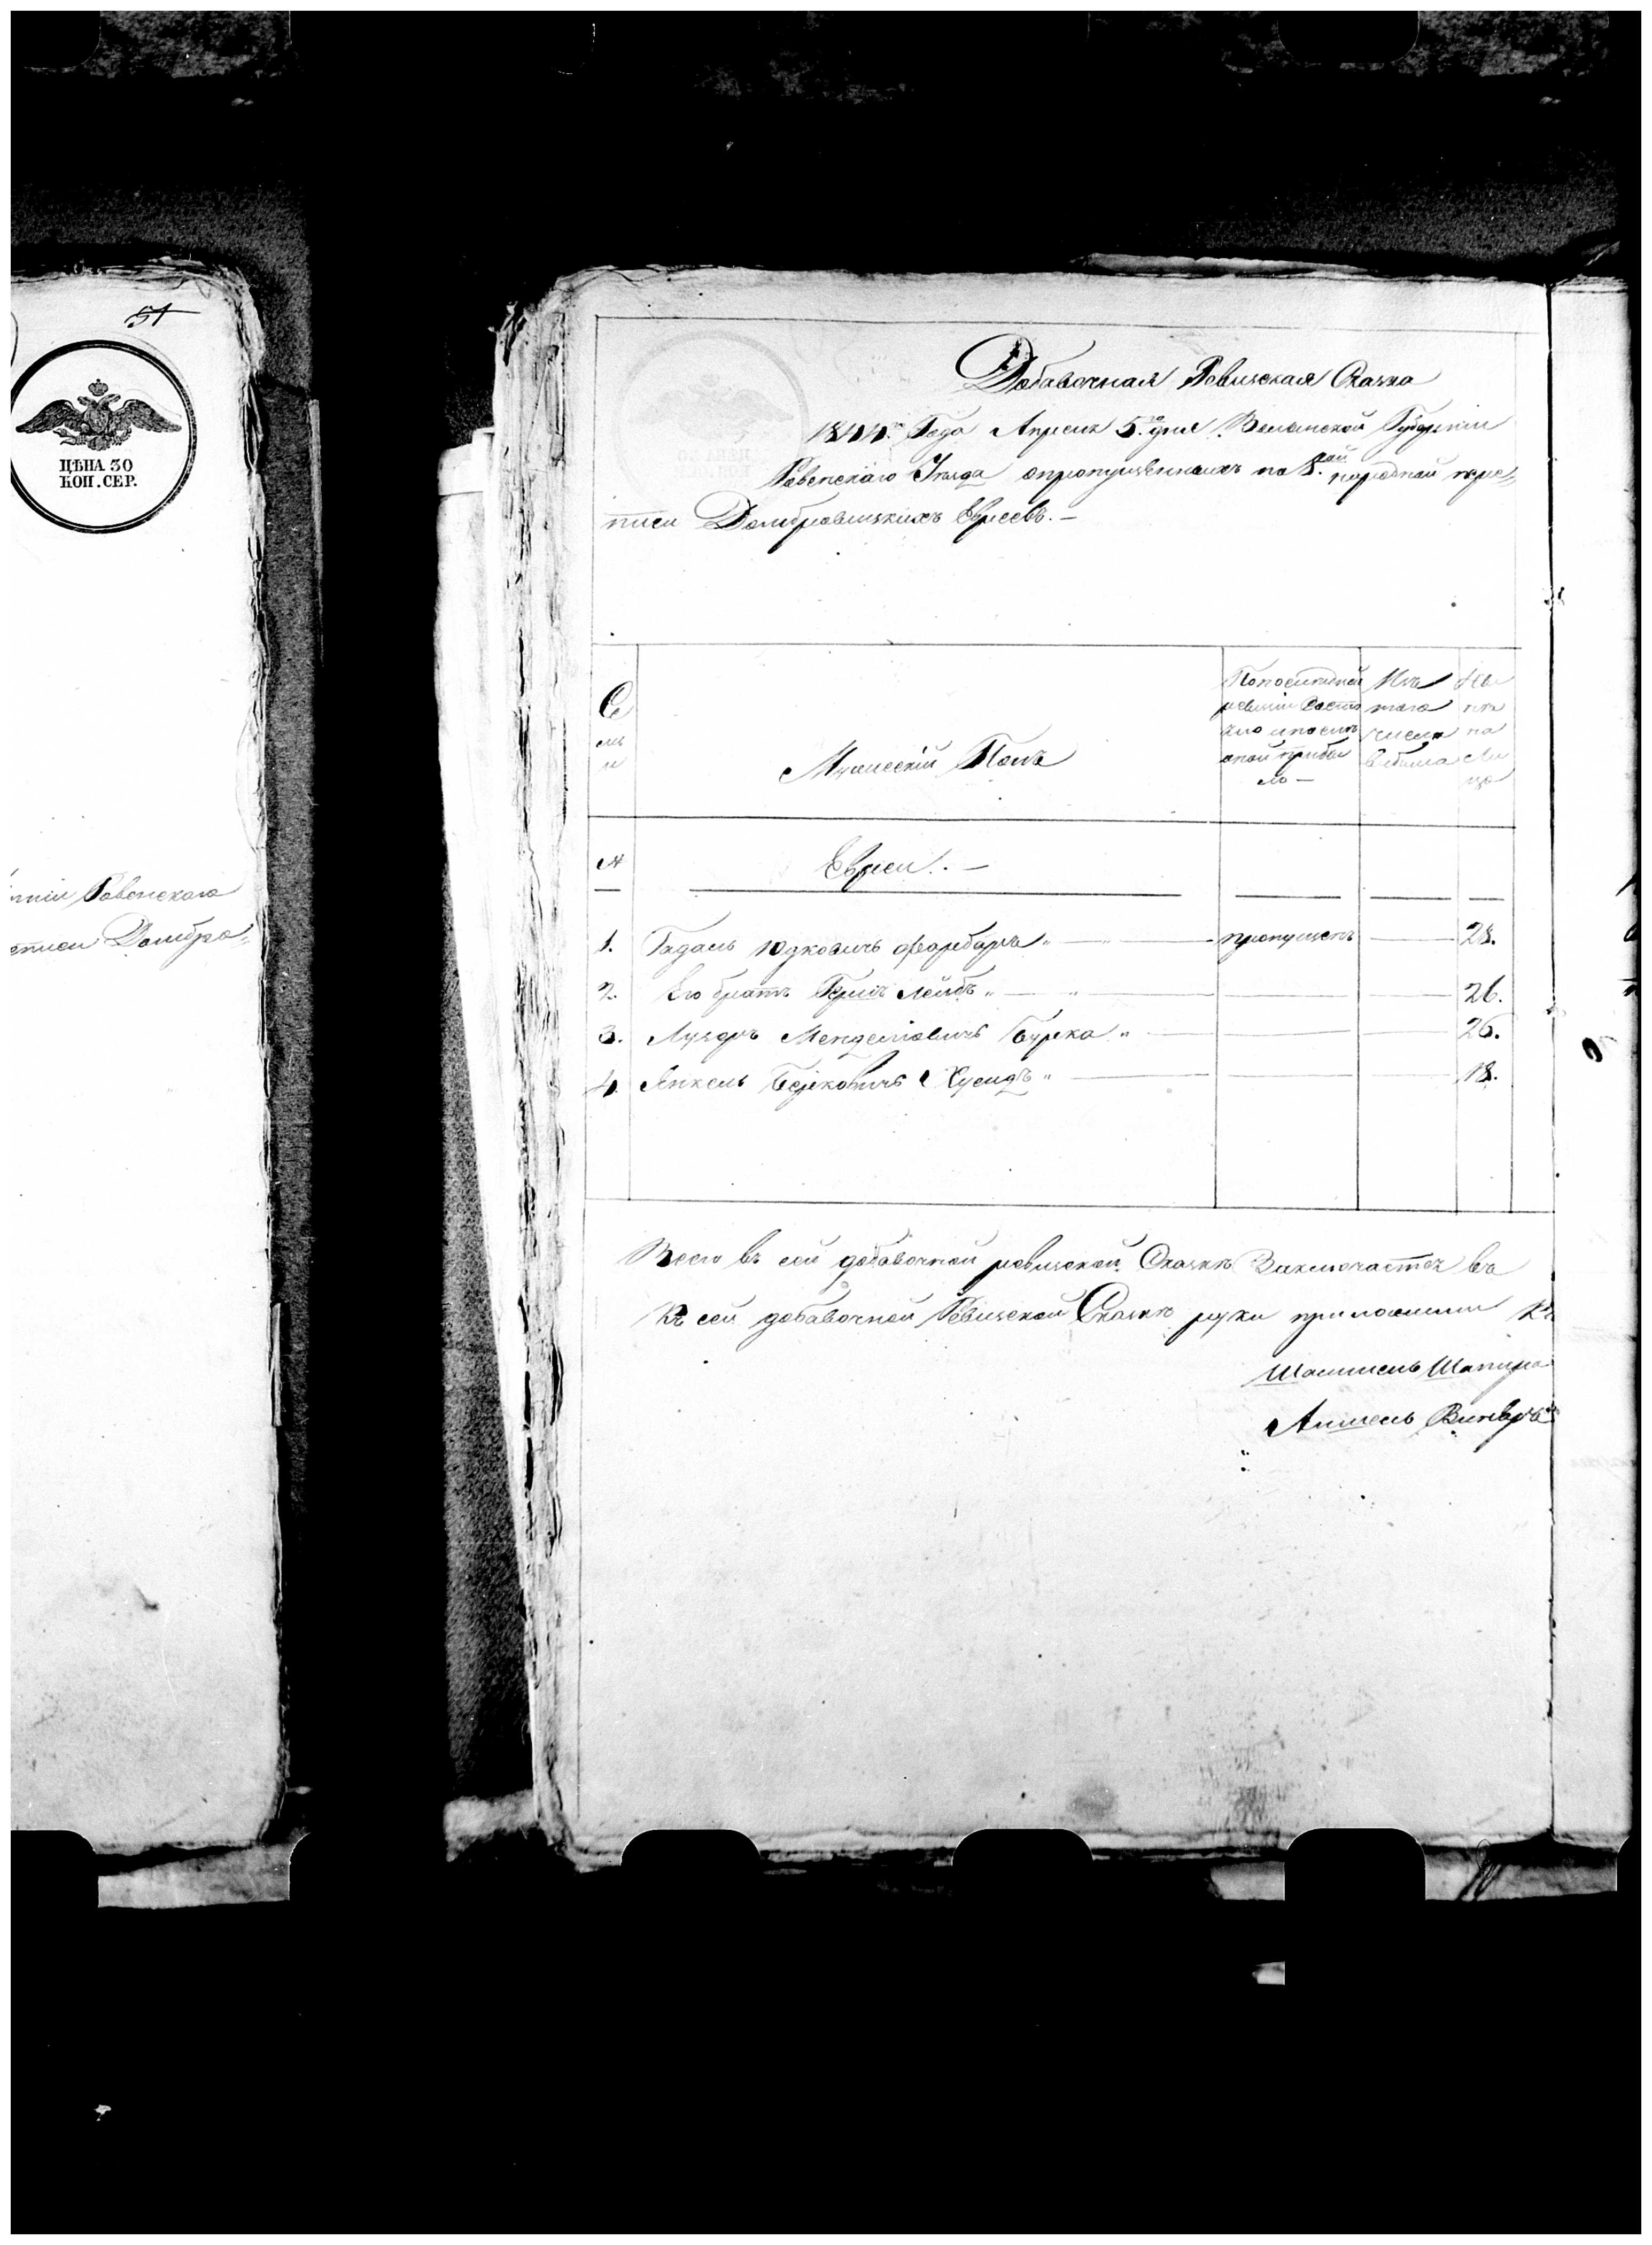 51
ЦѢНА 30
КОП. СЕР.
Ровенскаго
Домбро-
Добавочная Ревизская Сказка
1844.го Года Апреля 5.го дня Волынской Губерніи
Ровенскаго Уезда опропущенныхъ по 8.ой народной пере-
писи Домбровицкихъ Евреевъ. —
Се
мь
и
Мужескій Полъ
Попоследней
ревизіи Состо
яло ипосле
оной прибы
ло —
Изъ
того
числа
выбыло
Ны
не
на
ли
цо
№
Евреи. —
1. Гадаль Юдковичъ Фарбаръ пропущенъ 28.
2. Его братъ Герш Лейбъ 26.
3. Лузеръ Менделіовичъ Бурка 26.
4. Янкель Берковичъ Хусидъ 18.
Всего въ сей добавочной ревизской Сказке Заключается во
Къ сей добавочной Ревизской Сказке руки приложили
Шапира
Аншель Винеръ